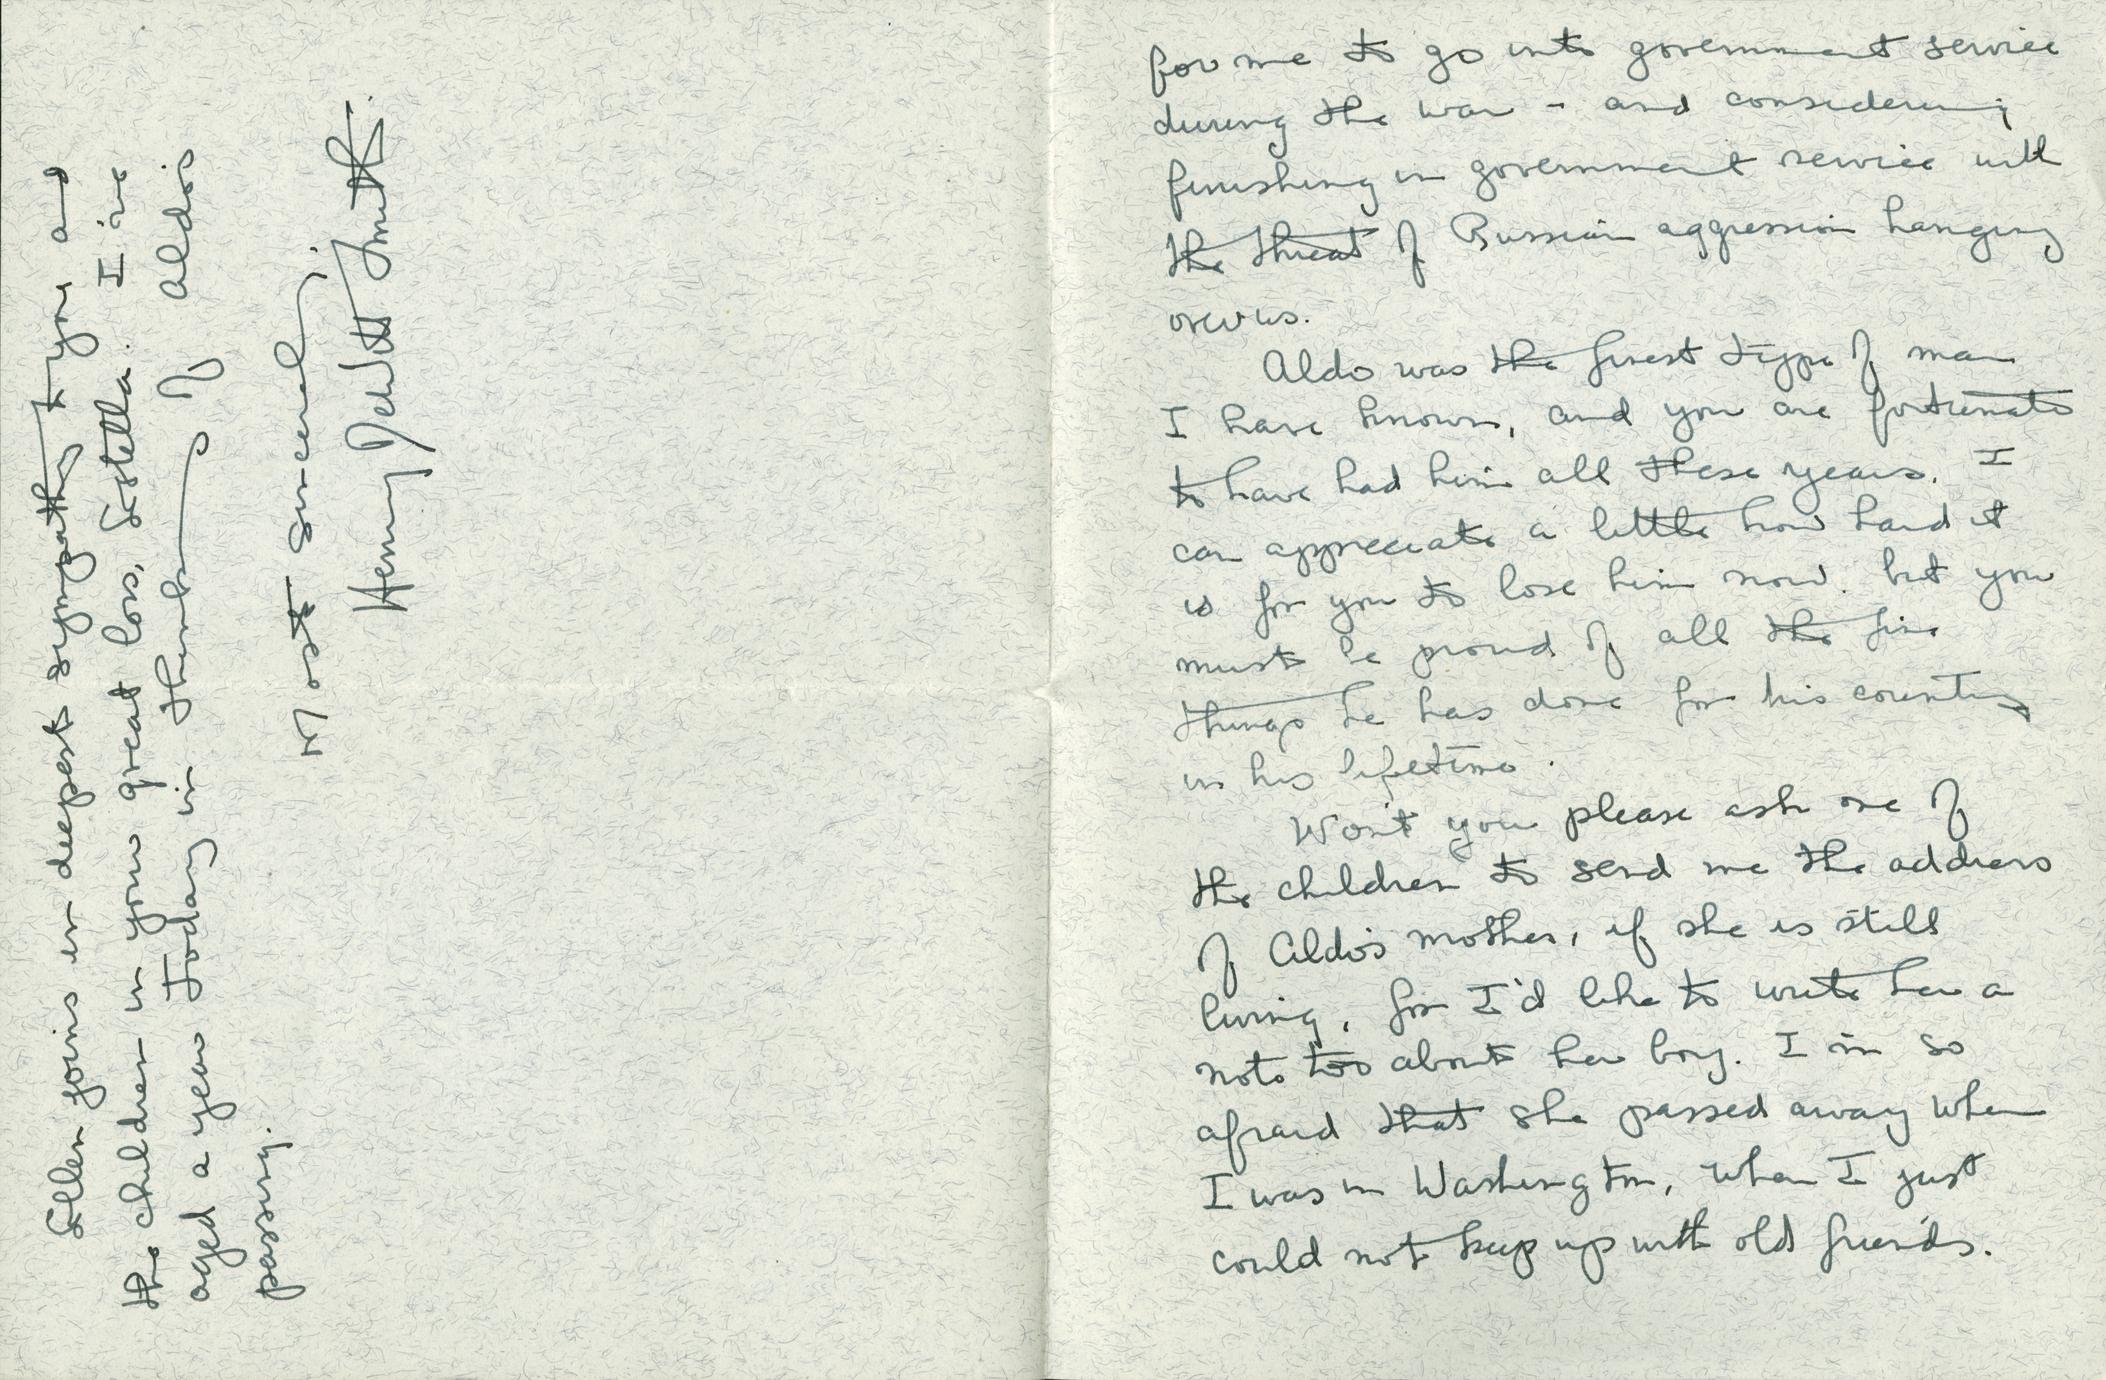 for me to go into government service
during the war - and considering
finishing in government service with
the threat of Russian aggression hanging
over us.
Aldo was the finest type of man
I have known, and you are fortunate
to have had him all these years. I
can appreciate a little how hard it
is for you to lose him now. but you
must be proud of all the fine
things he has done for his country
in his lifetime.
Won't you please ask one of
the children to send me the address
of Aldo's mother, if she is still
living, for I'd like to write her a
note too about her boy. I'm so
afraid that she passed away when
I was in Washington, when I just
could not keep up with old friends.
Ellen joins in deepest sympathy to you and
the children in your great loss, Estella. I've
aged a year today in thinking of Aldo's
passing.
Most sincerely,
Henry DeWitt Smith.